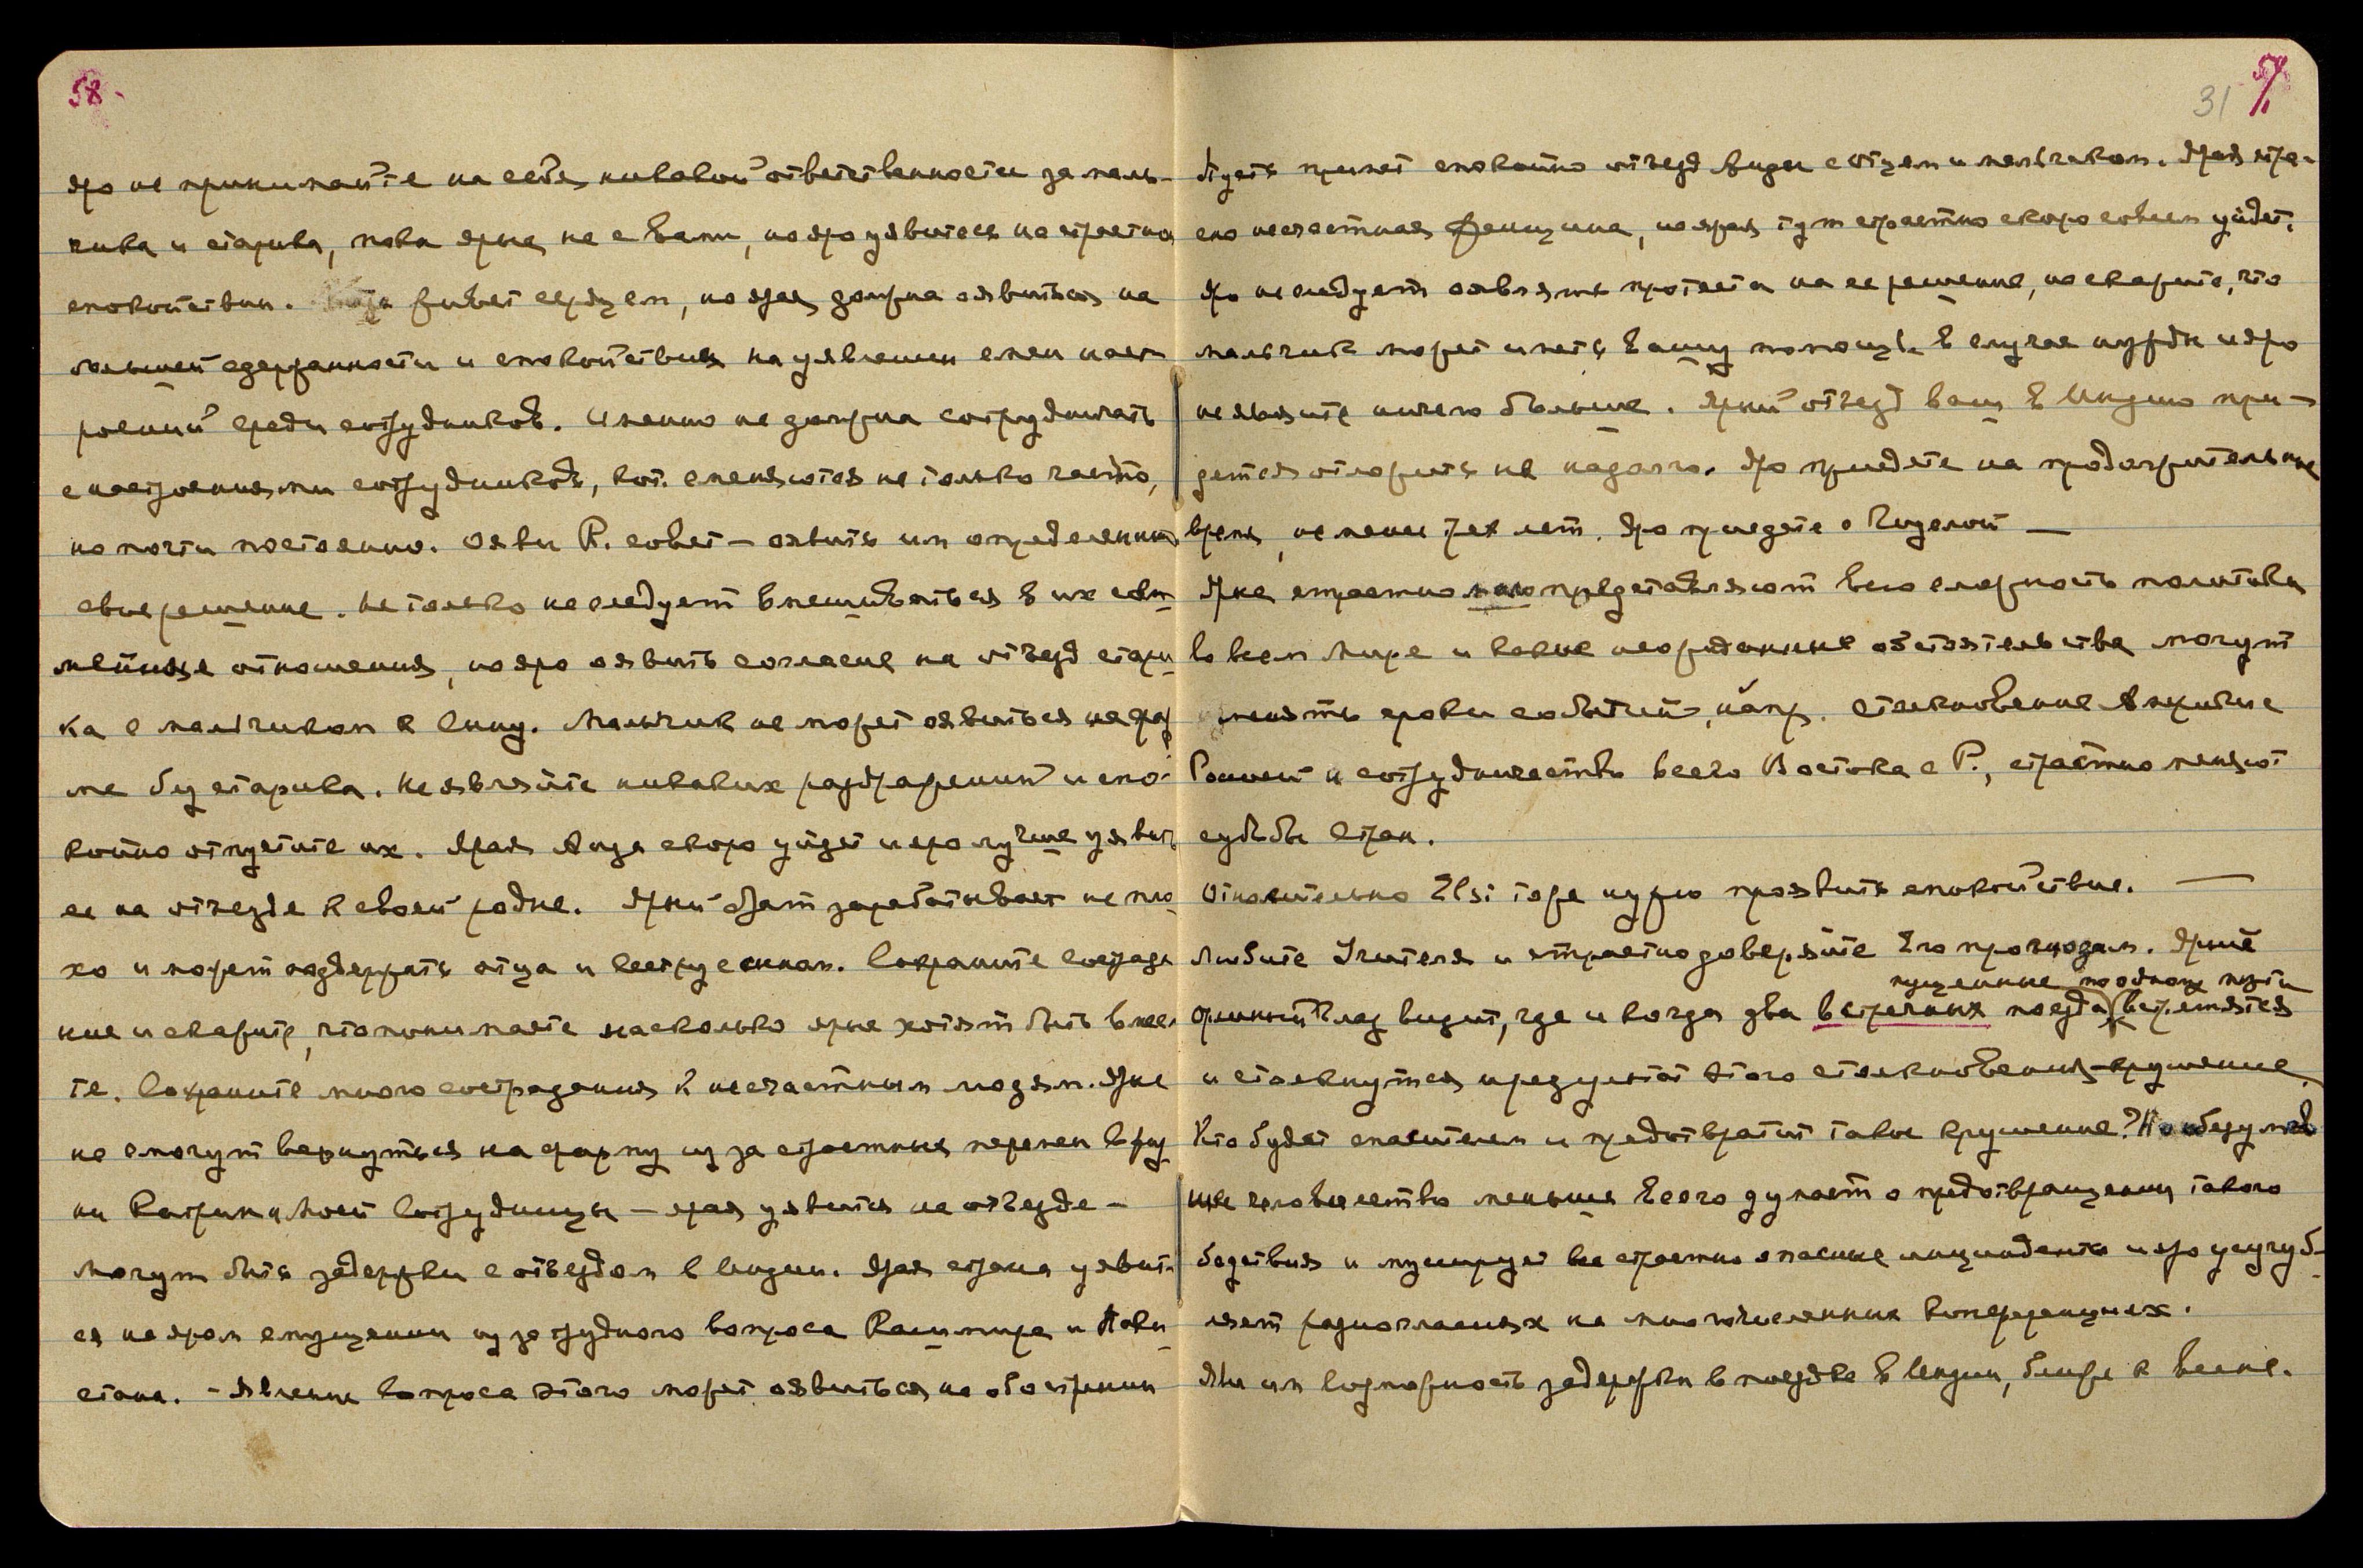 58.
яро не принимайте на себя никакой ответственности за маль-
чика и старика, пока ярые не с Вами, но яро уявитесь на страстном
спокойствии. живет сердцем, но ярая должна оявиться на
большей сдержанности и спокойствия на уявлении смен наст-
роений среди сотрудников. Именно не должна сотрудничать
с настроениями сотрудников, кот. сменяются не только часто,
но почти постоянно.Ояви Р. совет — оявить им определенно
свое решение. Не только не следует вмешиваться в их сем-
мейные отношения, но яро оявить согласие на отъезд стари-
ка с мальчиком к сыну. Мальчик не может оявиться на фер
ме без старика. Не являйте никаких раздражений и спо-
койно отпустите их. Ярая Аида скоро уйдет и яро лучше уявить
ее на отъезде к своей родне. Ярый брат зарабатывает не пло-
хо и может поддержать отца и с внуком. Сохраните сострада
ние и скажите, что понимаете насколько ярые хотят быть вмес
те. Сохраните много сострадания к несчастным людям. Ярые
не смогут вернуться на ферму из за страстных перемен в жиз
ни Катрин и Моей Сотрудницы — ярая уявится на отъезде —
могут быть задержки с отъездом в Индии. Ярая страна уявит-
ся на яром смущении из за трудного вопроса Кашмира и Паки-
стана. - Явление вопроса этого может оявиться на обострении
31 59
Пусть примет спокойно отъезд Аиды с отцом и мальчиком. Ярая стра-
сно несчастная женщина, но ярая тут страстно скоро совсем уйдет.
Яро не следует оявлять протеста на ее решение, но скажите, что
мальчик может иметь Вашу помощь в случае нужды и яро
не являйте ничего больше. Ярый отъезд ваш в Индию при-
дется отложить не надолго. Яро приедете на продолжительное
время, не менее трех лет. Яро приедете с Гизелой —
Ярые страстно мало представляют всю сложность политики
во всем Мире и какие неожиданные обстоятельства могут
изменять сроки событий, напр. столкновение Америки с
Россией и сотрудничество всего Востока с Р., страстно меняют
судьбы стран.
Относительно Elsi тоже нужно проявить спокойствие. —
Любите Учителя и страстно доверяйте Его прогнозам. Ярый
пущенные по одному пути
Орлиный Глаз видит, где и когда два встречных поезда встретятся
и столкнутся и результат этого столкновения-крушение.
Кто будет спасителем и предотвратит такое крушение? Но обезумев
шее человечество меньше всего думает о предотвращении такого
бедствия и муссирует все страстно опасные инциденты и яро усугуб-
ляет разногласиях на многочисленных конференциях.
Яви им возможность задержки в поездке в Индии, ближе к весне.